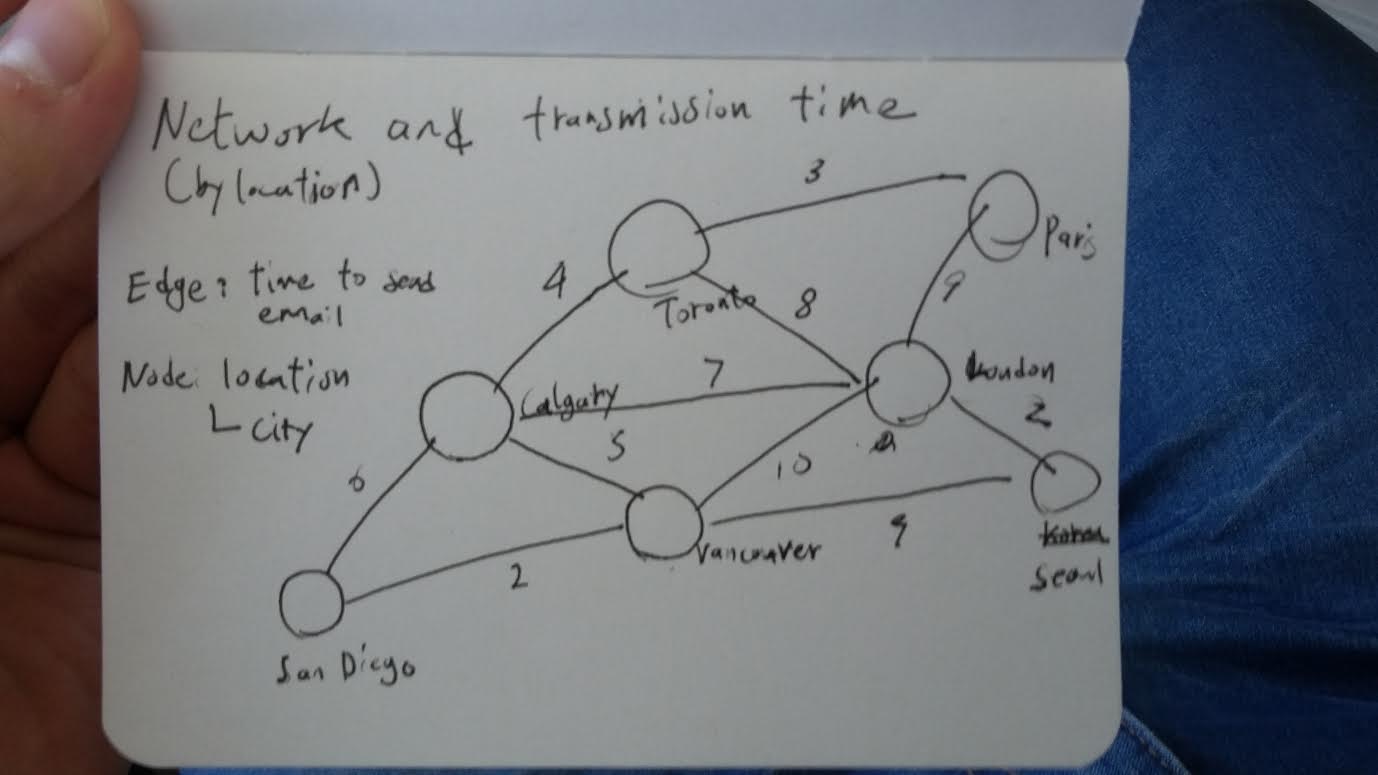 Network and transmission time
(by location)
Edge: time to send
email
Node: location
City
3
Paris
4
Toronto
8
9
London
7
Calgary
2
5
10
6
9
Vancouver
Seoul
2
San Diego